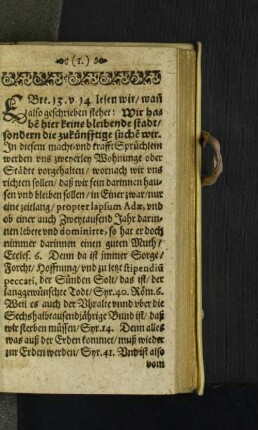 (1.)
EBre. 13. v 14 lesen wir/ wañ
also geschrieben stehet: Wir ha-
bē hier keine bleibende stadt/
sondern die zukünfftige suchē wir.
In diesem macht-vnd krafft Sprüchlein
werden vns zweyerley Wohnunge oder
Städte vorgehalten / wornach wir vns
richten sollen/ daß wir sein darinnen hau-
sen vnd bleiben sollen/ in Einer zwar/ nur
eine zeitlang/ propter lapsum Adæ, vnd
ob einer auch Zweytausend Jahr darin-
nen lebete vnd dominirte, so hat er doch
nimmer darinnen einen guten Muth/
Eccles. 6. Denn da ist immer Sorge/
Forcht/ Hoffnung/ vnd zu letzt stipendiū
peccati, der Sünden Solt/ das ist/ der
langgewünschte Todt/ Syr. 40. Röm. 6.
Weil es auch der Vhralte vnnd vber die
Sechshalbtausendjährige Bund ist/ daß
wir sterben müssen/ Syr. 14. Denn alles
was auß der Erden kommet/ muß wieder
zur Erden werden/ Syr. 41. Vnd ist also
vom